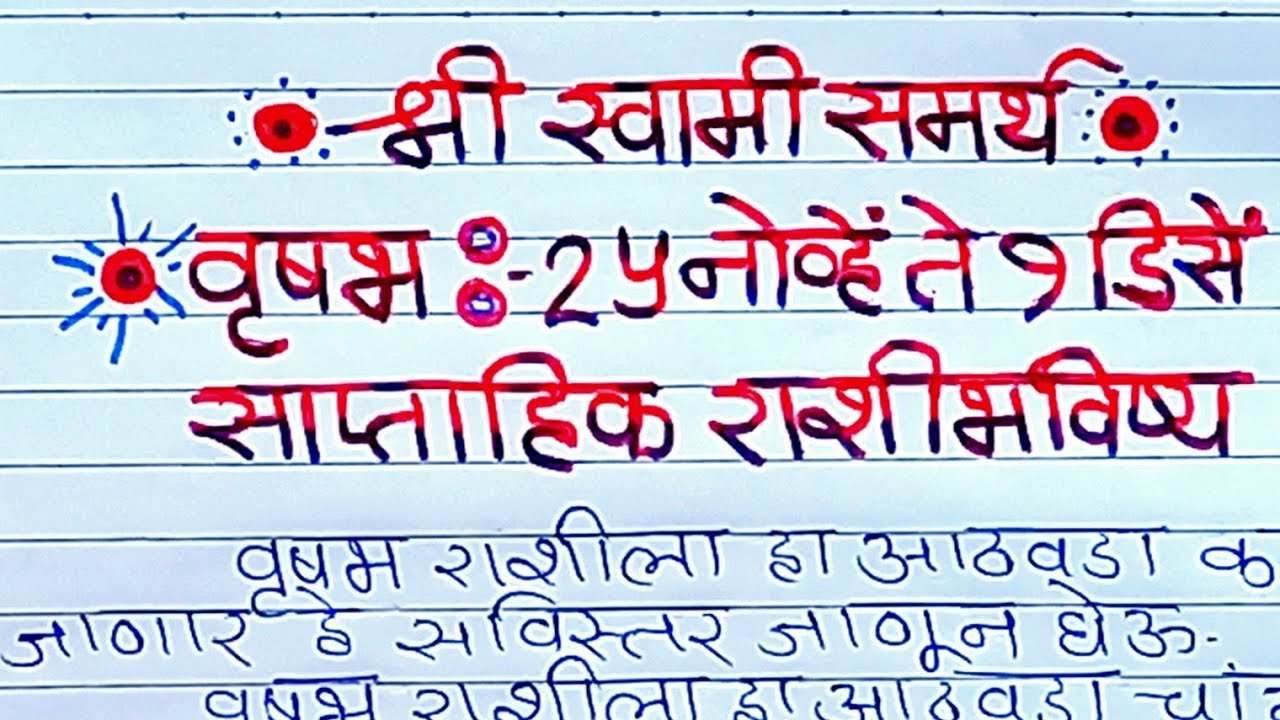 श्री स्वामी समर्थ
वृषभ :- 25 नोव्हें ते 1 डिसें
साप्ताहिक राशीभविष्य
वृषभ राशीला हा आठवडा क
जाणार हे सविस्तर जाणून घेऊ.
वृषभ राशीला हा आठवडा चां